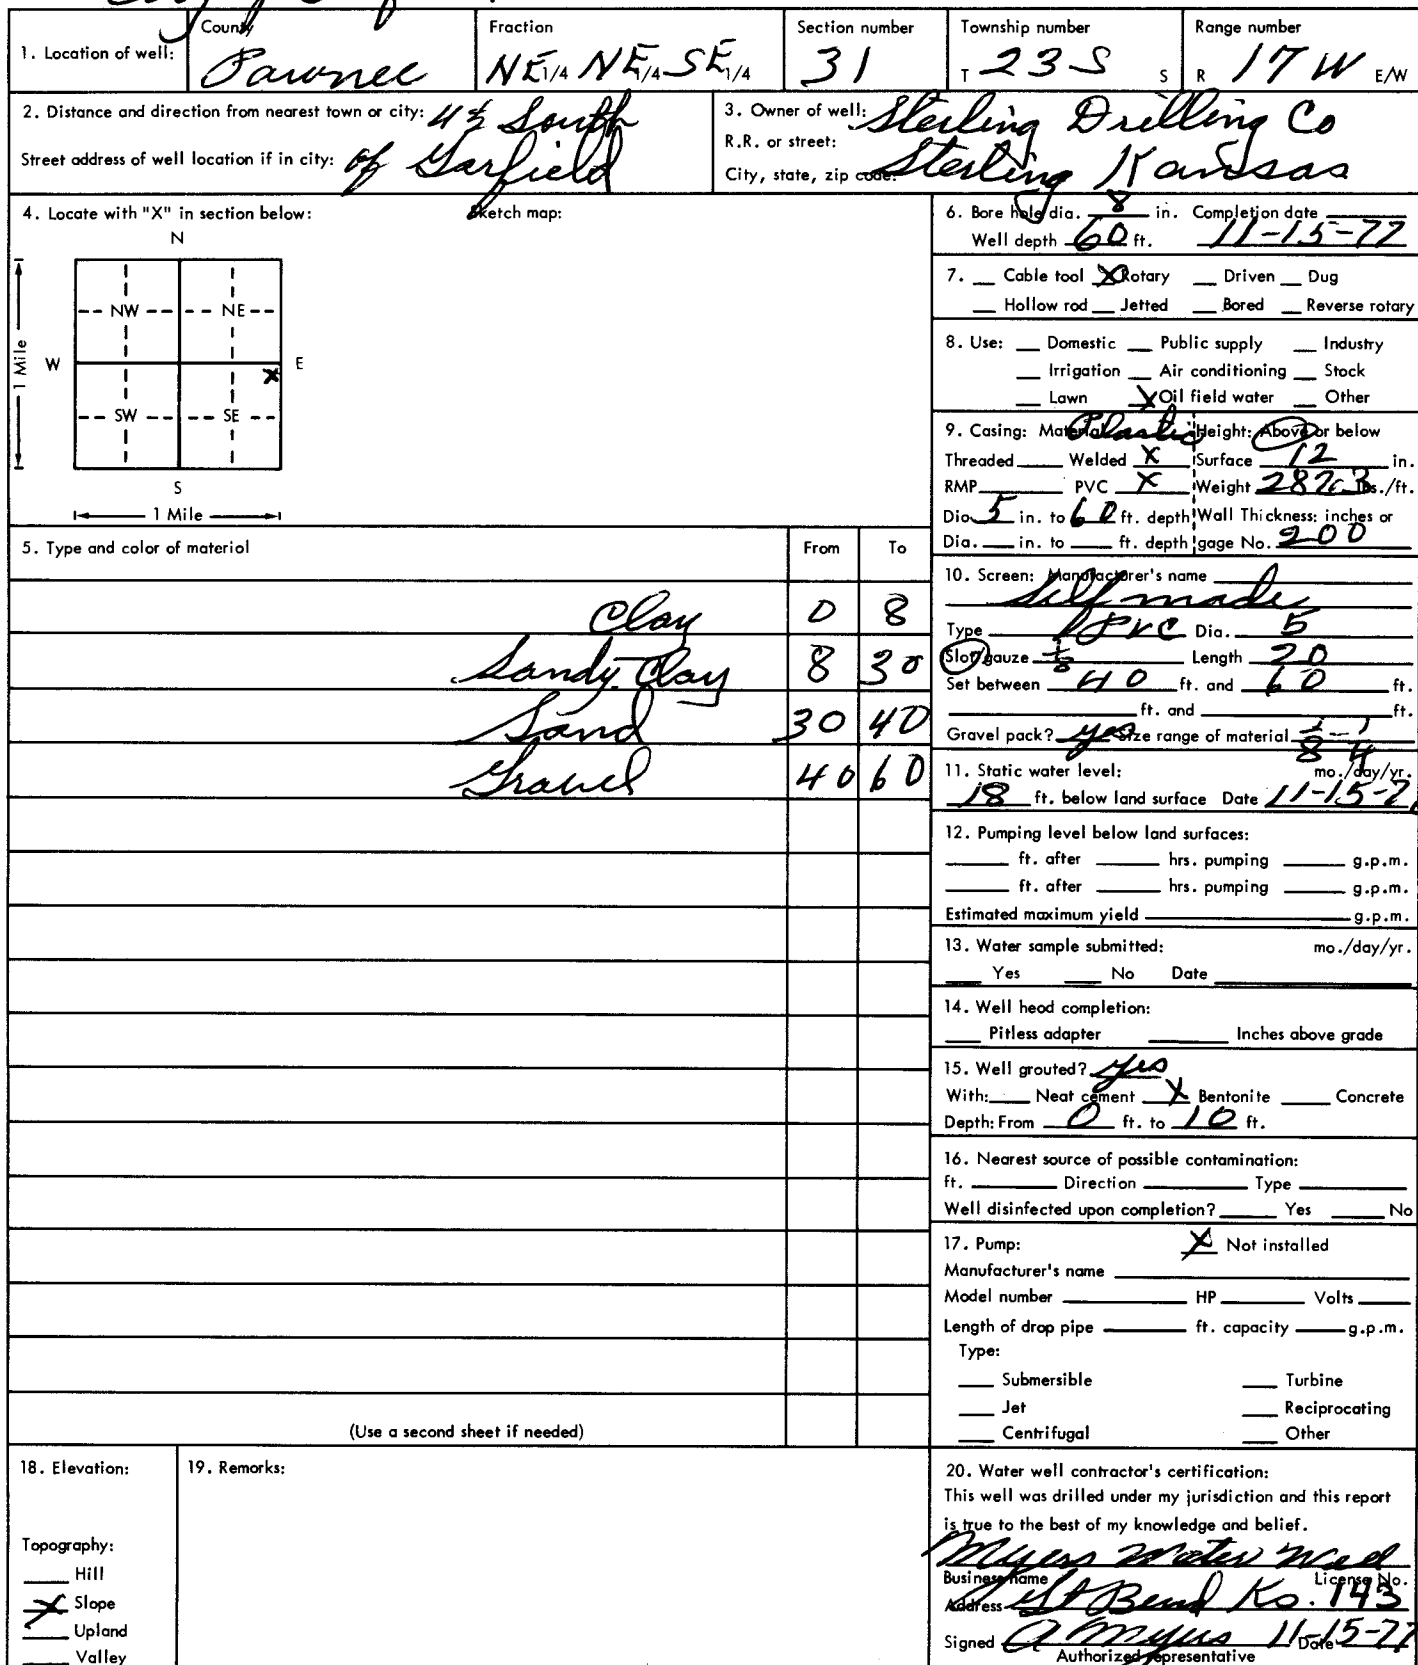 County
Fraction
Section number
Township number
Range number
1. Location of well:
Pawnee
NE 1/4 NE 1/4 SE 1/4
31
T 23 S S
R 17 W E/W
2. Distance and direction from nearest town or city: 4 1/2 South
Street address of well location if in city: of Garfield
3. Owner of well: Sterling Drilling Co
R.R. or street:
City, state, zip code: Sterling Kansas
4. Locate with "X" in section below:
Sketch map:
N
NW NE
W E
X
SW SE
S
1 Mile
1 Mile
5. Type and color of material From To
Clay 0 8
Sandy Clay 8 30
Sand 30 40
Gravel 40 60
(Use a second sheet if needed)
6. Bore hole dia. 8 in. Completion date
Well depth 60 ft. 11-15-77
7. __ Cable tool X Rotary __ Driven __ Dug
__ Hollow rod __ Jetted __ Bored __ Reverse rotary
8. Use: __ Domestic __ Public supply __ Industry
__ Irrigation __ Air conditioning __ Stock
__ Lawn X Oil field water __ Other
9. Casing: Material Plastic Height: Above or below
Threaded ____ Welded X Surface 12 in.
RMP ____ PVC X Weight lbs./ft.
Dia. 5 in. to 60 ft. depth Wall Thickness: inches or
Dia. ___ in. to ___ ft. depth gage No. 200
10. Screen: Manufacturer's name
Self made
Type PVC Dia. 5
Slot/gauze 1/8 Length 20
Set between 40 ft. and 60 ft.
____ ft. and ____ ft.
Gravel pack? yes Size range of material 1/8 - 1/4
11. Static water level: mo./day/yr.
18 ft. below land surface Date 11-15-7
12. Pumping level below land surfaces:
____ ft. after ____ hrs. pumping ____ g.p.m.
____ ft. after ____ hrs. pumping ____ g.p.m.
Estimated maximum yield ____ g.p.m.
13. Water sample submitted: mo./day/yr.
___ Yes ___ No Date ____
14. Well head completion:
___ Pitless adapter ____ Inches above grade
15. Well grouted? yes
With: ___ Neat cement X Bentonite ___ Concrete
Depth: From 0 ft. to 10 ft.
16. Nearest source of possible contamination:
ft. ____ Direction ____ Type ____
Well disinfected upon completion? ____ Yes ____ No
17. Pump: X Not installed
Manufacturer's name ____
Model number ____ HP ____ Volts ____
Length of drop pipe ____ ft. capacity ____ g.p.m.
Type:
___ Submersible ___ Turbine
___ Jet ___ Reciprocating
___ Centrifugal ___ Other
18. Elevation:
Topography:
___ Hill
X Slope
___ Upland
___ Valley
19. Remarks:
20. Water well contractor's certification:
This well was drilled under my jurisdiction and this report
is true to the best of my knowledge and belief.
Myers Water Well
Business name License No.
Address Gt Bend Ks. 143
Signed A Myers Date 11-15-77
Authorized representative